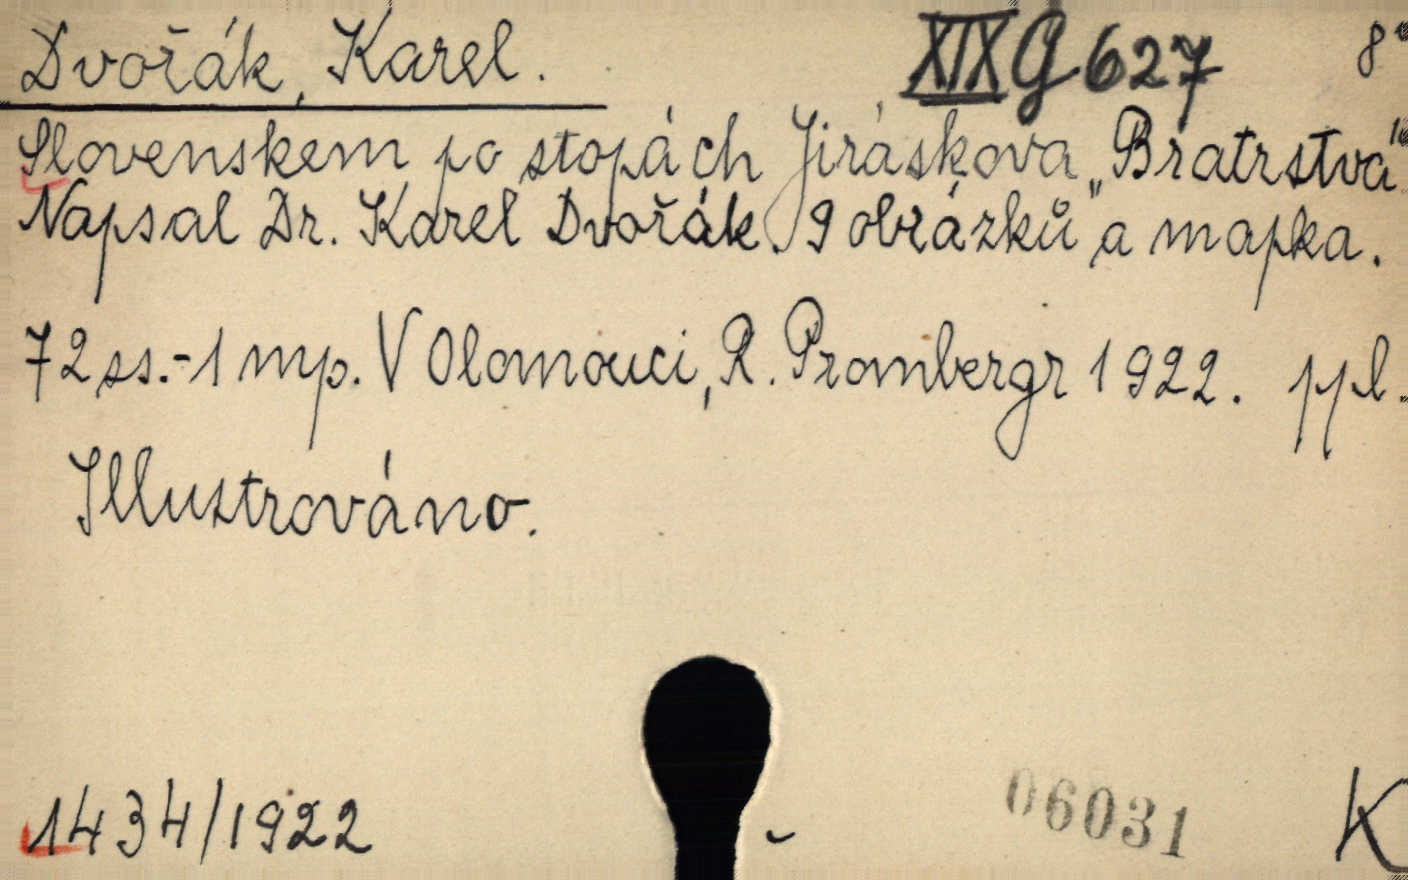 Dvořák, Karel. XIX G 627 8°
Slovenskem po stopách Jiráskova „Bratrstva"
Napsal Dr. Karel Dvořák. 9 obrázků a mapka.
72 ss.-1 mp. V Olomouci, R. Prombergr 1922. ppl.
Illustrováno.
1434/1922 06031 K